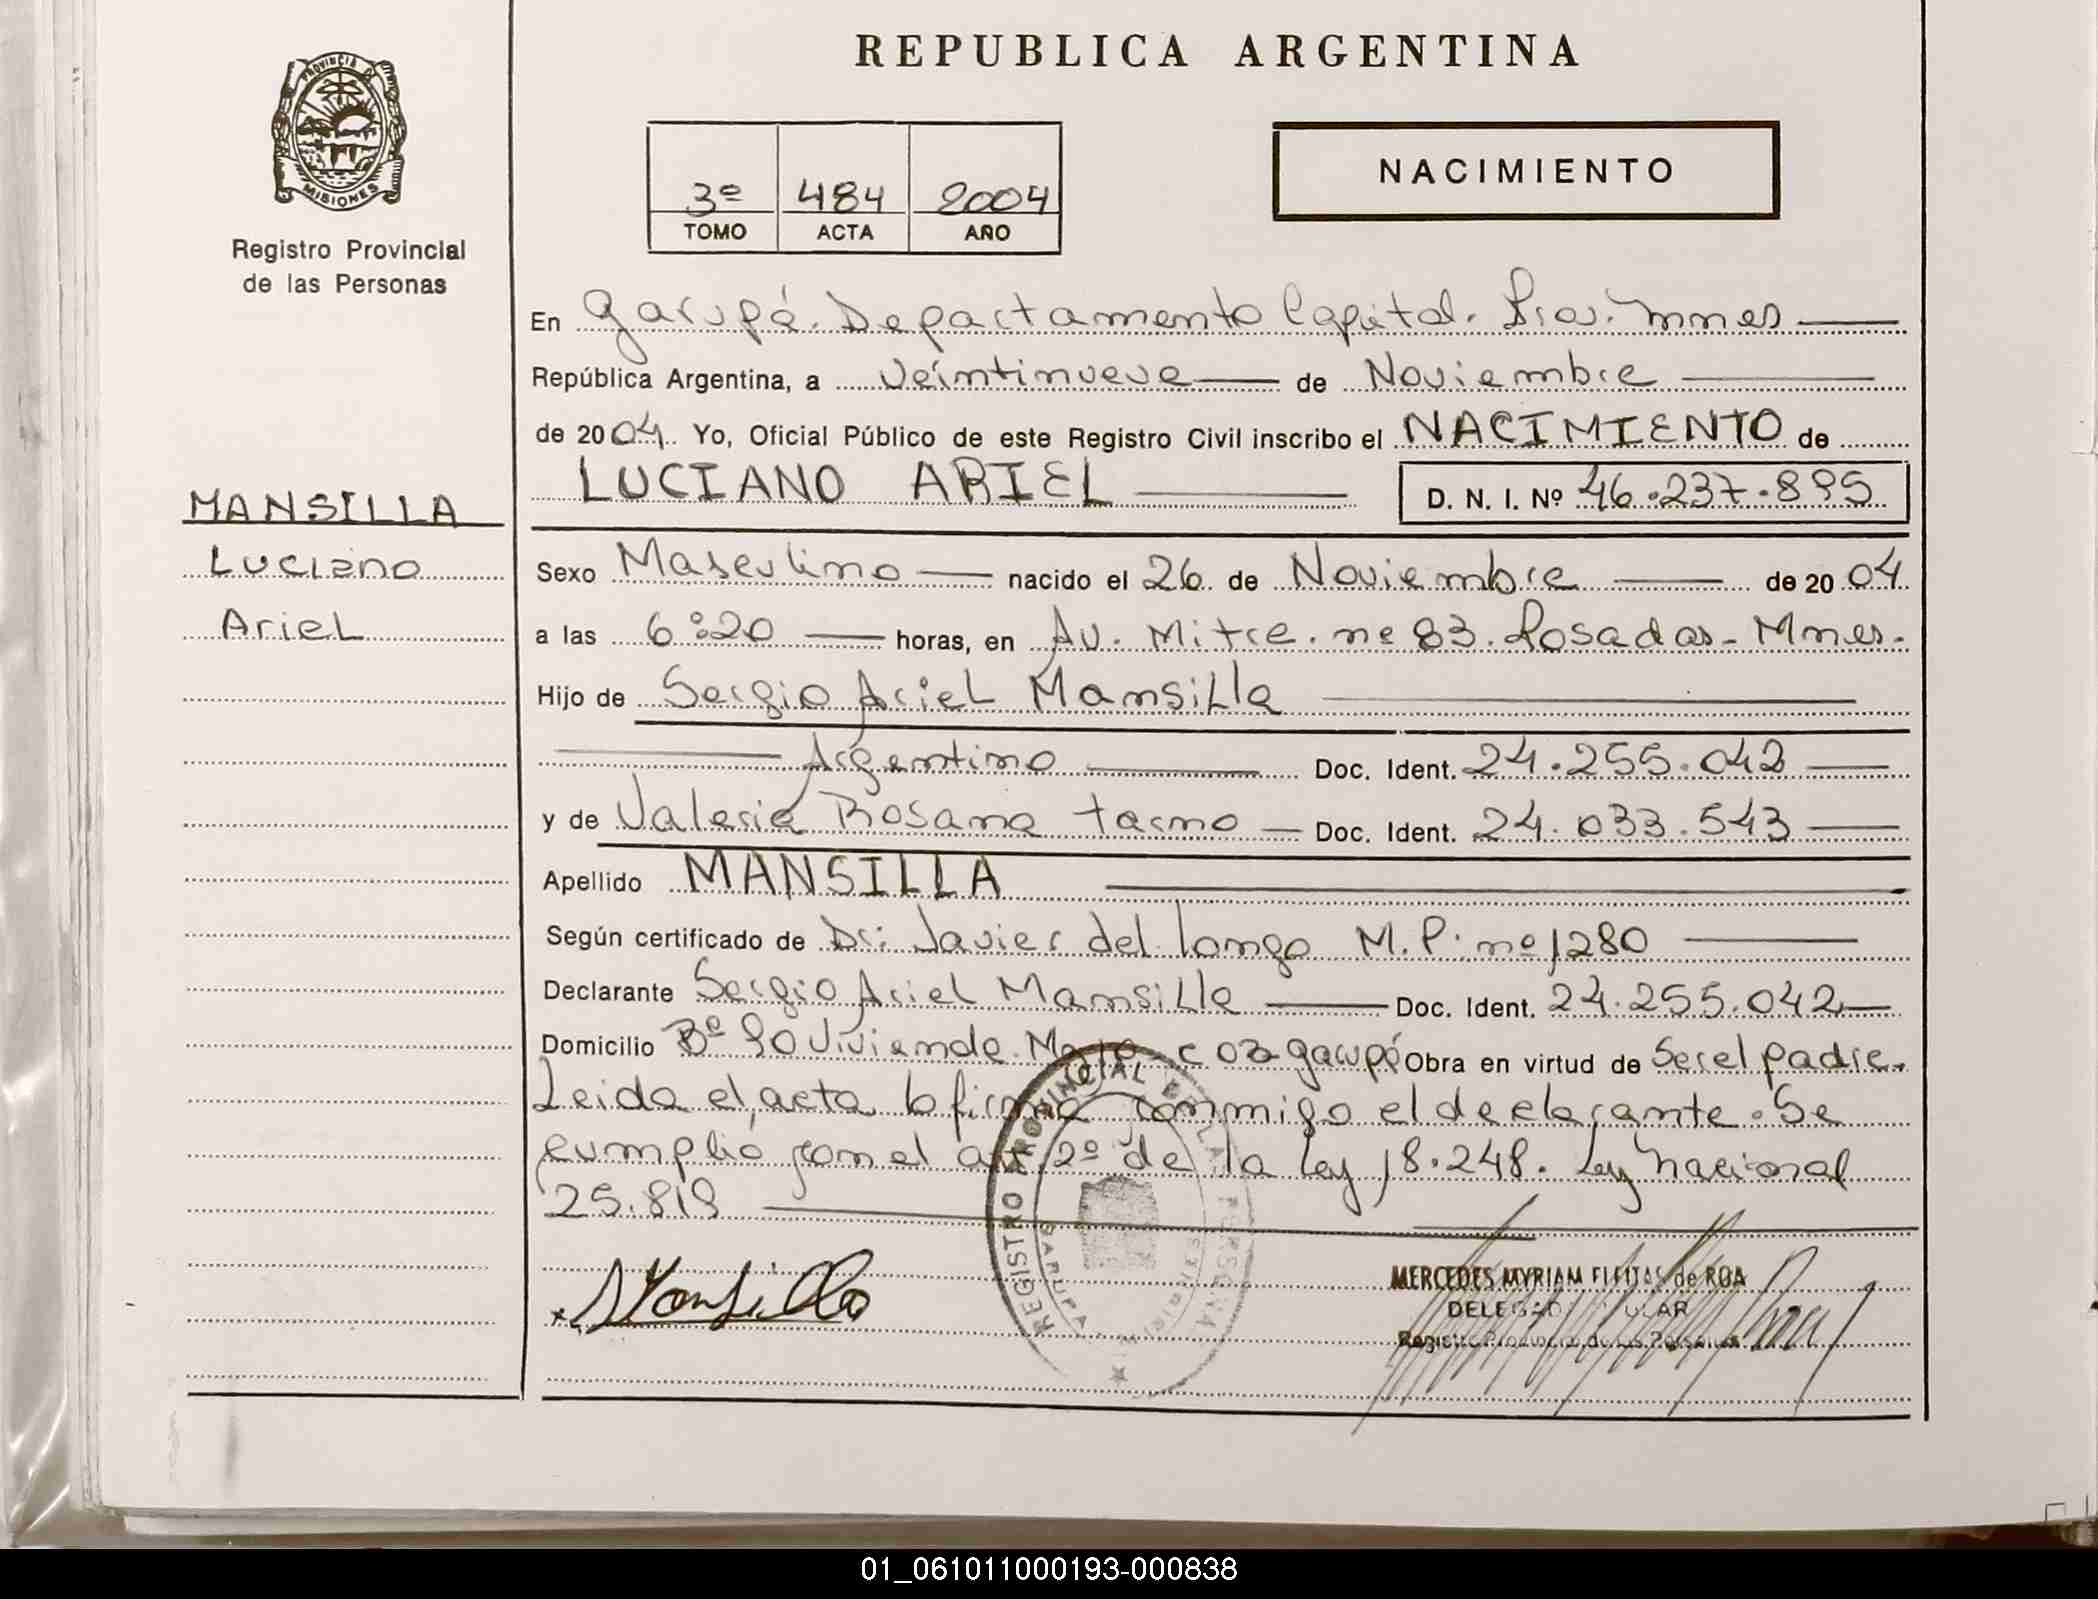 REPUBLICA ARGENTINA
PROVINCIA D
MISIONES
Registro Provincial
de las Personas
3º 484 2004
TOMO ACTA AÑO
NACIMIENTO
En Garupá. Departamento Capital. Prov. Mnes
República Argentina, a veintinueve de Noviembre
de 2004. Yo, Oficial Público de este Registro Civil inscribo el NACIMIENTO de
LUCIANO ARIEL D. N. I. Nº 46.237.895
MANSILLA
Luciano
Ariel
Sexo Masculino nacido el 26 de Noviembre de 2004
a las 6:20 horas, en Av. Mitre. nº 83. Posadas - Mnes.
Hijo de Sergio Ariel Mansilla
Argentino Doc. Ident. 24.255.042
y de Valeria Rosana Tarno Doc. Ident. 24.033.543
Apellido MANSILLA
Según certificado de Dr. Javier del Longo M.P. nº 1280
Declarante Sergio Ariel Mansilla Doc. Ident. 24.255.042
Domicilio Bº 90 Vivienda Garupá Obra en virtud de Ser el padre.
Leida el acta lo firma conmigo el declarante. Se
cumplió con el art. 2º de la Ley 18.248. Ley Nacional
25.819
Mansilla
REGISTRO PROVINCIAL DE LAS PERSONAS
GARUPA
MERCEDES MYRIAM FLEITAS de ROA
DELEGADA TITULAR
Registro Provincial de las Personas
01_061011000193-000838